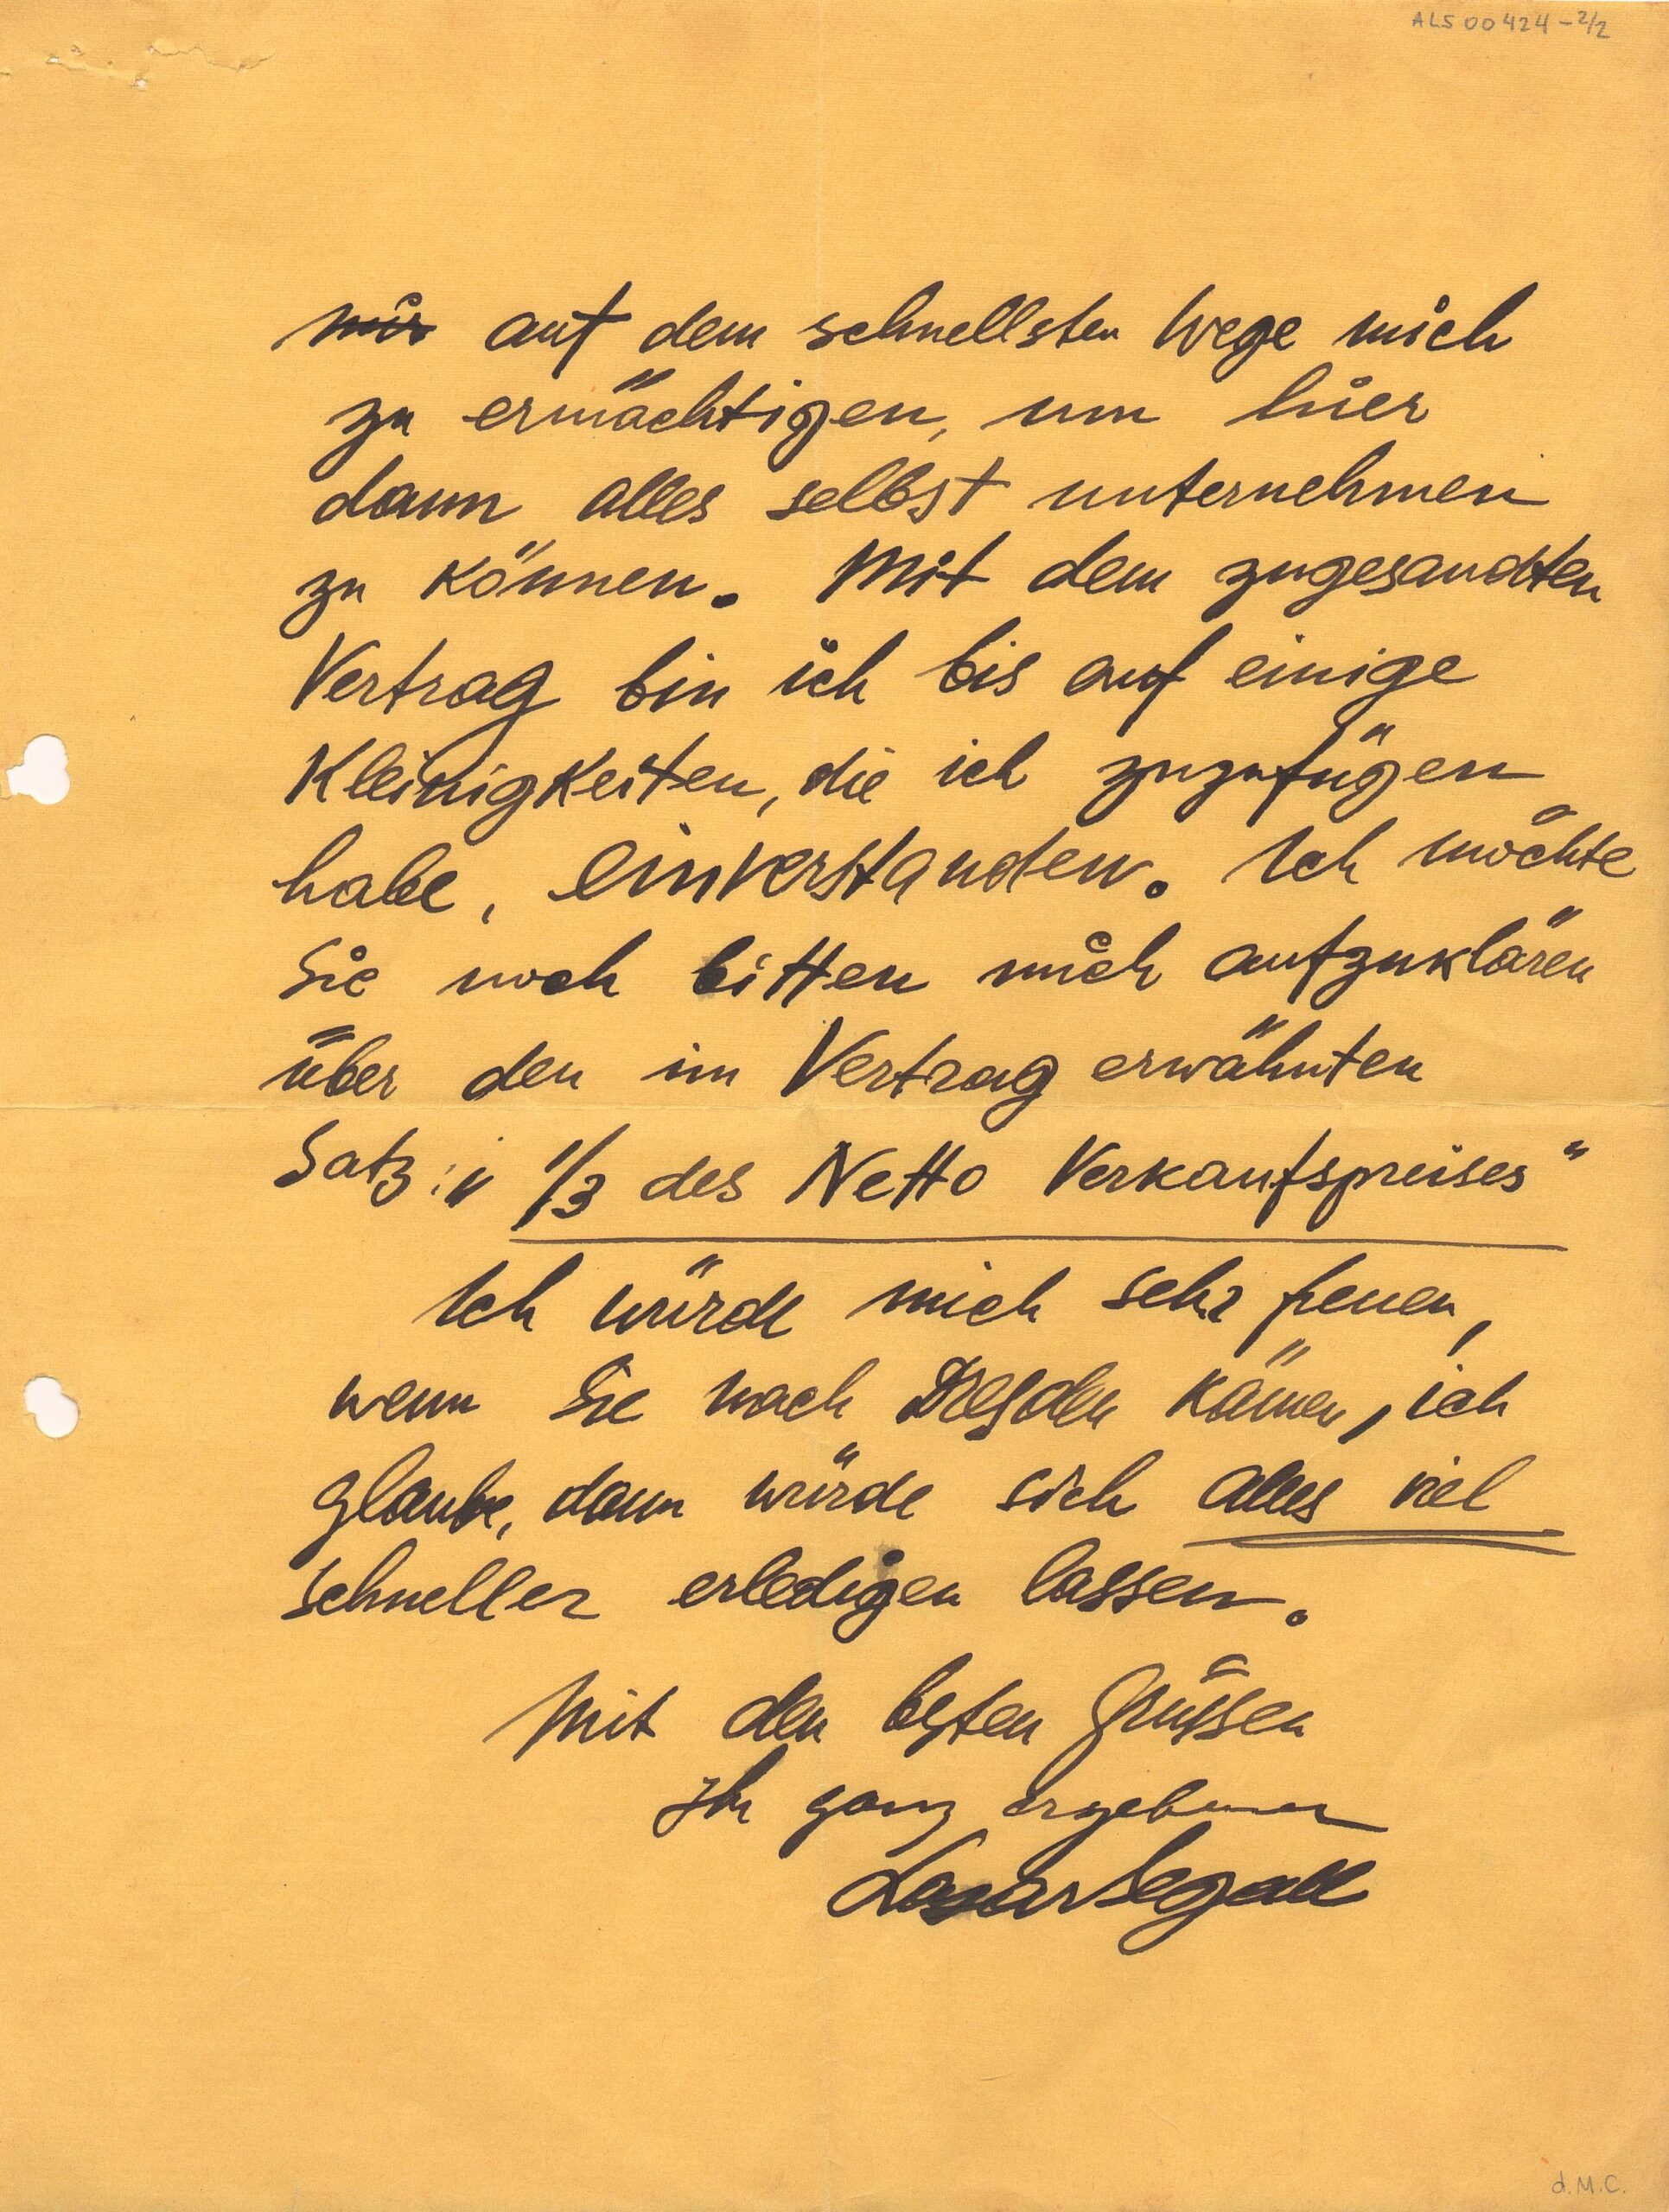 ALS 00424 - 2/2
mir auf dem schnellsten Wege mich
zu ermächtigen, um hier
dann alles selbst unternehmen
zu können. Mit dem zugesandten
Vertrag bin ich bis auf einige
Kleinigkeiten, die ich zuzufügen
habe, einverstanden. Ich möchte
Sie noch bitten mich aufzuklären
über den im Vertrag erwähnten
Satz: „1/3 des Netto Verkaufspreises“
Ich würde mich sehr freuen,
wenn Sie nach Dresden kämen, ich
glaube, dann würde sich alles viel
schneller erledigen lassen.
Mit den besten Grüssen
Ihr ganz ergebener
Lasar Segall
d.M.C.